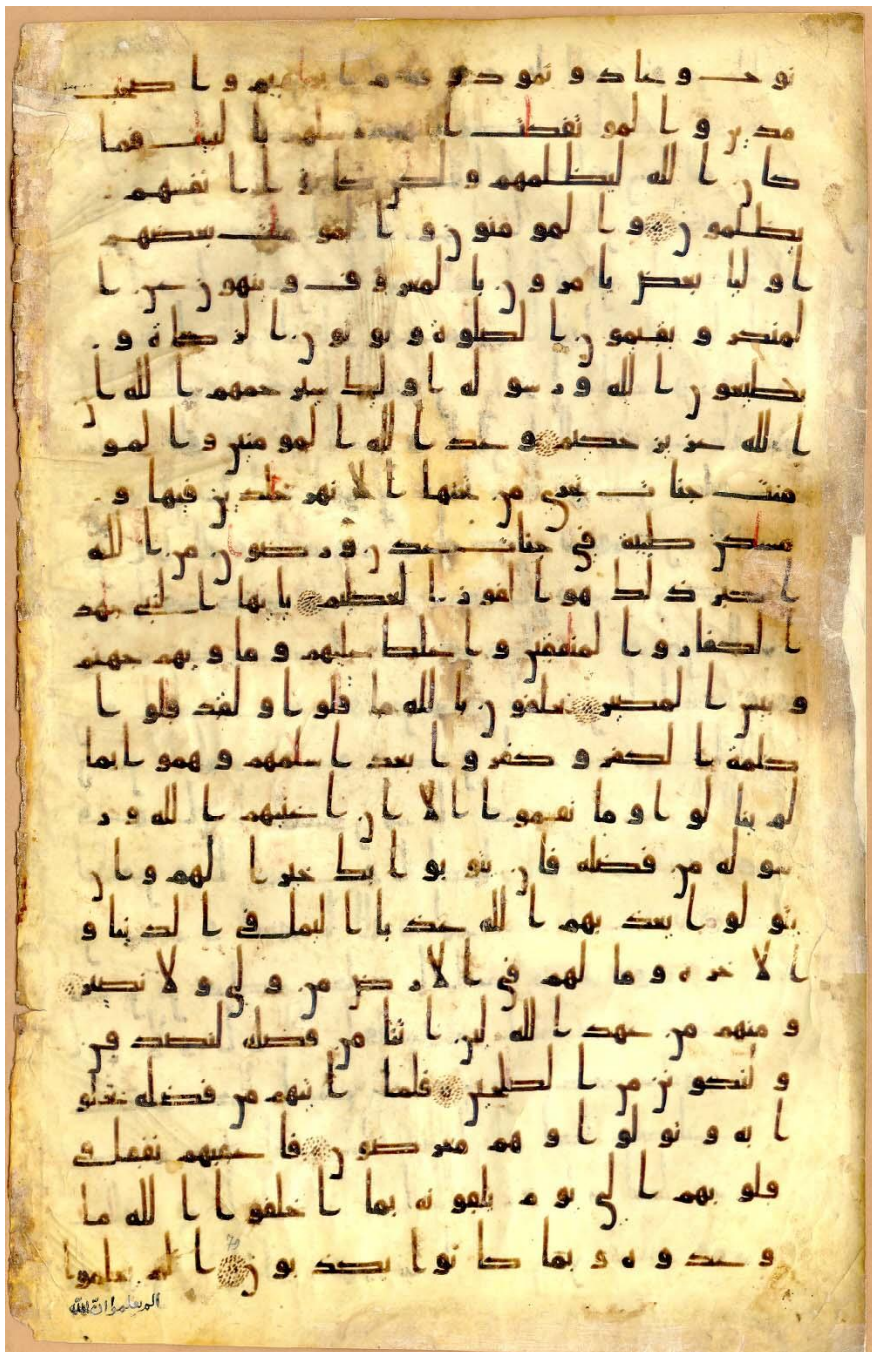 نوح وعاد وثمود وقوم ابرهيم واصحب
مدين والموتفكت اتتهم رسلهم بالبينت فما
كان الله ليظلمهم ولكن كانوا انفسهم
يظلمون والمومنون والمومنت بعضهم
اوليا بعض يامرون بالمعروف وينهون عن ا
لمنكر ويقيمون الصلوة ويوتون الزكاة و
يطيعون الله ورسوله اوليك سيرحمهم الله ان
الله عزيز حكيم وعد الله المومنين والمو
منت جنات تجري من تحتها الانهر خلدين فيها و
مسكن طيبة في جنات عدن ورضون من الله
اكبر ذلك هو الفوز العظيم يايها النبي جهد
الكفار والمنفقين واغلظ عليهم وماويهم جهنم
وبيس المصير يحلفون بالله ما قلوا ولقد قلوا
كلمة الكفر وكفروا بعد اسلمهم وهموا بما
لم ينالوا وما نقموا الا ان اغنيهم الله ور
سوله من فضله فان يتوبوا يك خيرا لهم وان
يتولوا يعذبهم الله عذبا اليما في الدنيا و
الاخرة وما لهم في الارض من ولي ولا نصير
ومنهم من عهد الله لين اتنا من فضله لنصدقن
ولنكونن من الصلحين فلما اتيهم من فضله بخلو
ا به وتولوا وهم معرضون فاعقبهم نفقا في
قلوبهم الى يوم يلقونه بما اخلفوا الله ما
وعدوه وبما كانوا يكذبون الم يعلموا
الم يعلموا ان الله